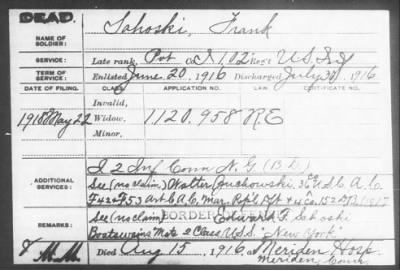 DEAD.
NAME OF SOLDIER: Sohoski, Frank
SERVICE: Late rank, Pvt Co. I, 102 Reg't U.S. Inf
TERM OF SERVICE: Enlisted June 20, 1916 Discharged July 30, 1916
DATE OF FILING. CLASS. APPLICATION NO. LAW. CERTIFICATE NO.
Invalid,
1918 May 22 Widow, 1120.958 R.E
Minor.
I 2 Inf Conn N.G. (B.D.)
ADDITIONAL SERVICES: See (no claim) Walter 36 Co U.S.C.A.C.
REMARKS: See (no claim) BORDER Edward F. Sohoski
Boatswains Mate 2 Class U.S.S. "New York"
Died Aug 15, 1916, at Meriden Hosp.
Meriden, Conn.